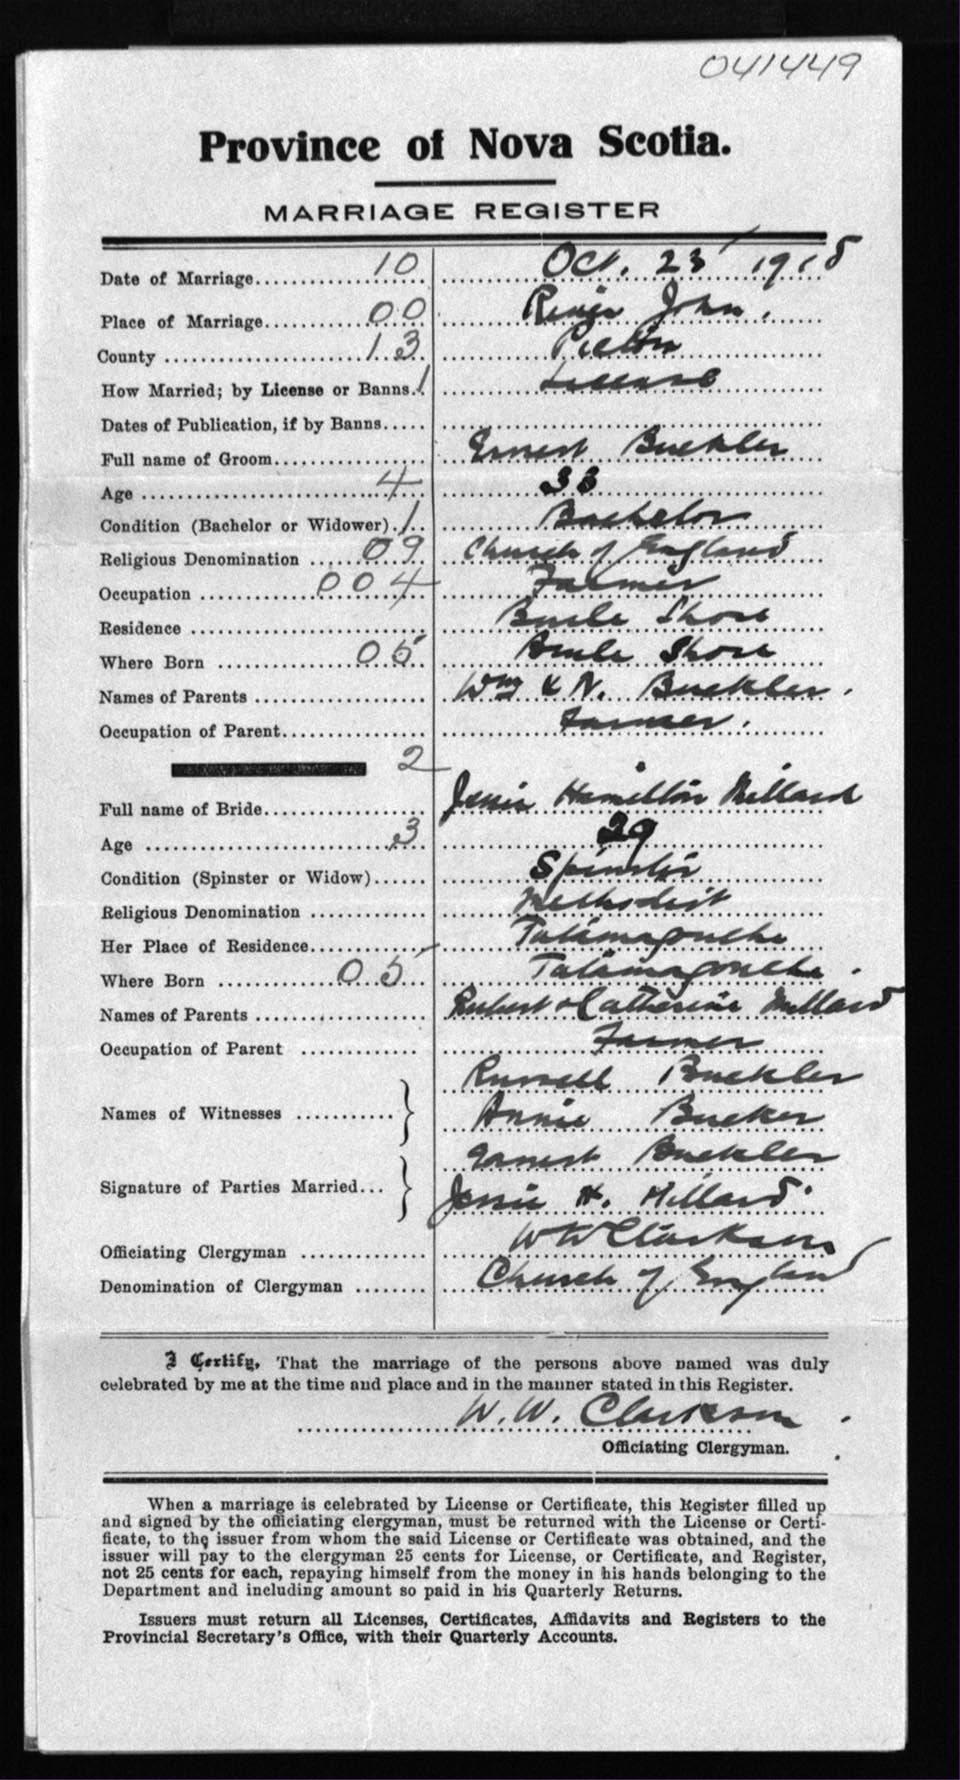 041449
Province of Nova Scotia.
MARRIAGE REGISTER
Date of Marriage 10 Oct. 23 1915
Place of Marriage 00 River John.
County 13 Pictou
How Married; by License or Banns 1 License
Dates of Publication, if by Banns
Full name of Groom Ernest Buckler
Age 4 33
Condition (Bachelor or Widower) 1 Bachelor
Religious Denomination 09 Church of England
Occupation 004 Farmer
Residence Brule Shore
Where Born 05 Brule Shore
Names of Parents Wm & N. Buckler.
Occupation of Parent Farmer.
2
Full name of Bride Jessie Hamilton Millard
Age 3 29
Condition (Spinster or Widow) Spinster
Religious Denomination Methodist
Her Place of Residence Tatamagouche
Where Born 05 Tatamagouche.
Names of Parents Robert & Catherine Millard
Occupation of Parent Farmer
Russell Buckler
Names of Witnesses
Annie Bucker
Ernest Buckler
Signature of Parties Married...
Jessie H. Millard
Officiating Clergyman W W Clarkson
Denomination of Clergyman Church of England
I Certify, That the marriage of the persons above named was duly
celebrated by me at the time and place and in the manner stated in this Register.
W. W. Clarkson.
Officiating Clergyman.
When a marriage is celebrated by License or Certificate, this Register filled up
and signed by the officiating clergyman, must be returned with the License or Certi-
ficate, to the issuer from whom the said License or Certificate was obtained, and the
issuer will pay to the clergyman 25 cents for License, or Certificate, and Register,
not 25 cents for each, repaying himself from the money in his hands belonging to the
Department and including amount so paid in his Quarterly Returns.
Issuers must return all Licenses, Certificates, Affidavits and Registers to the
Provincial Secretary's Office, with their Quarterly Accounts.